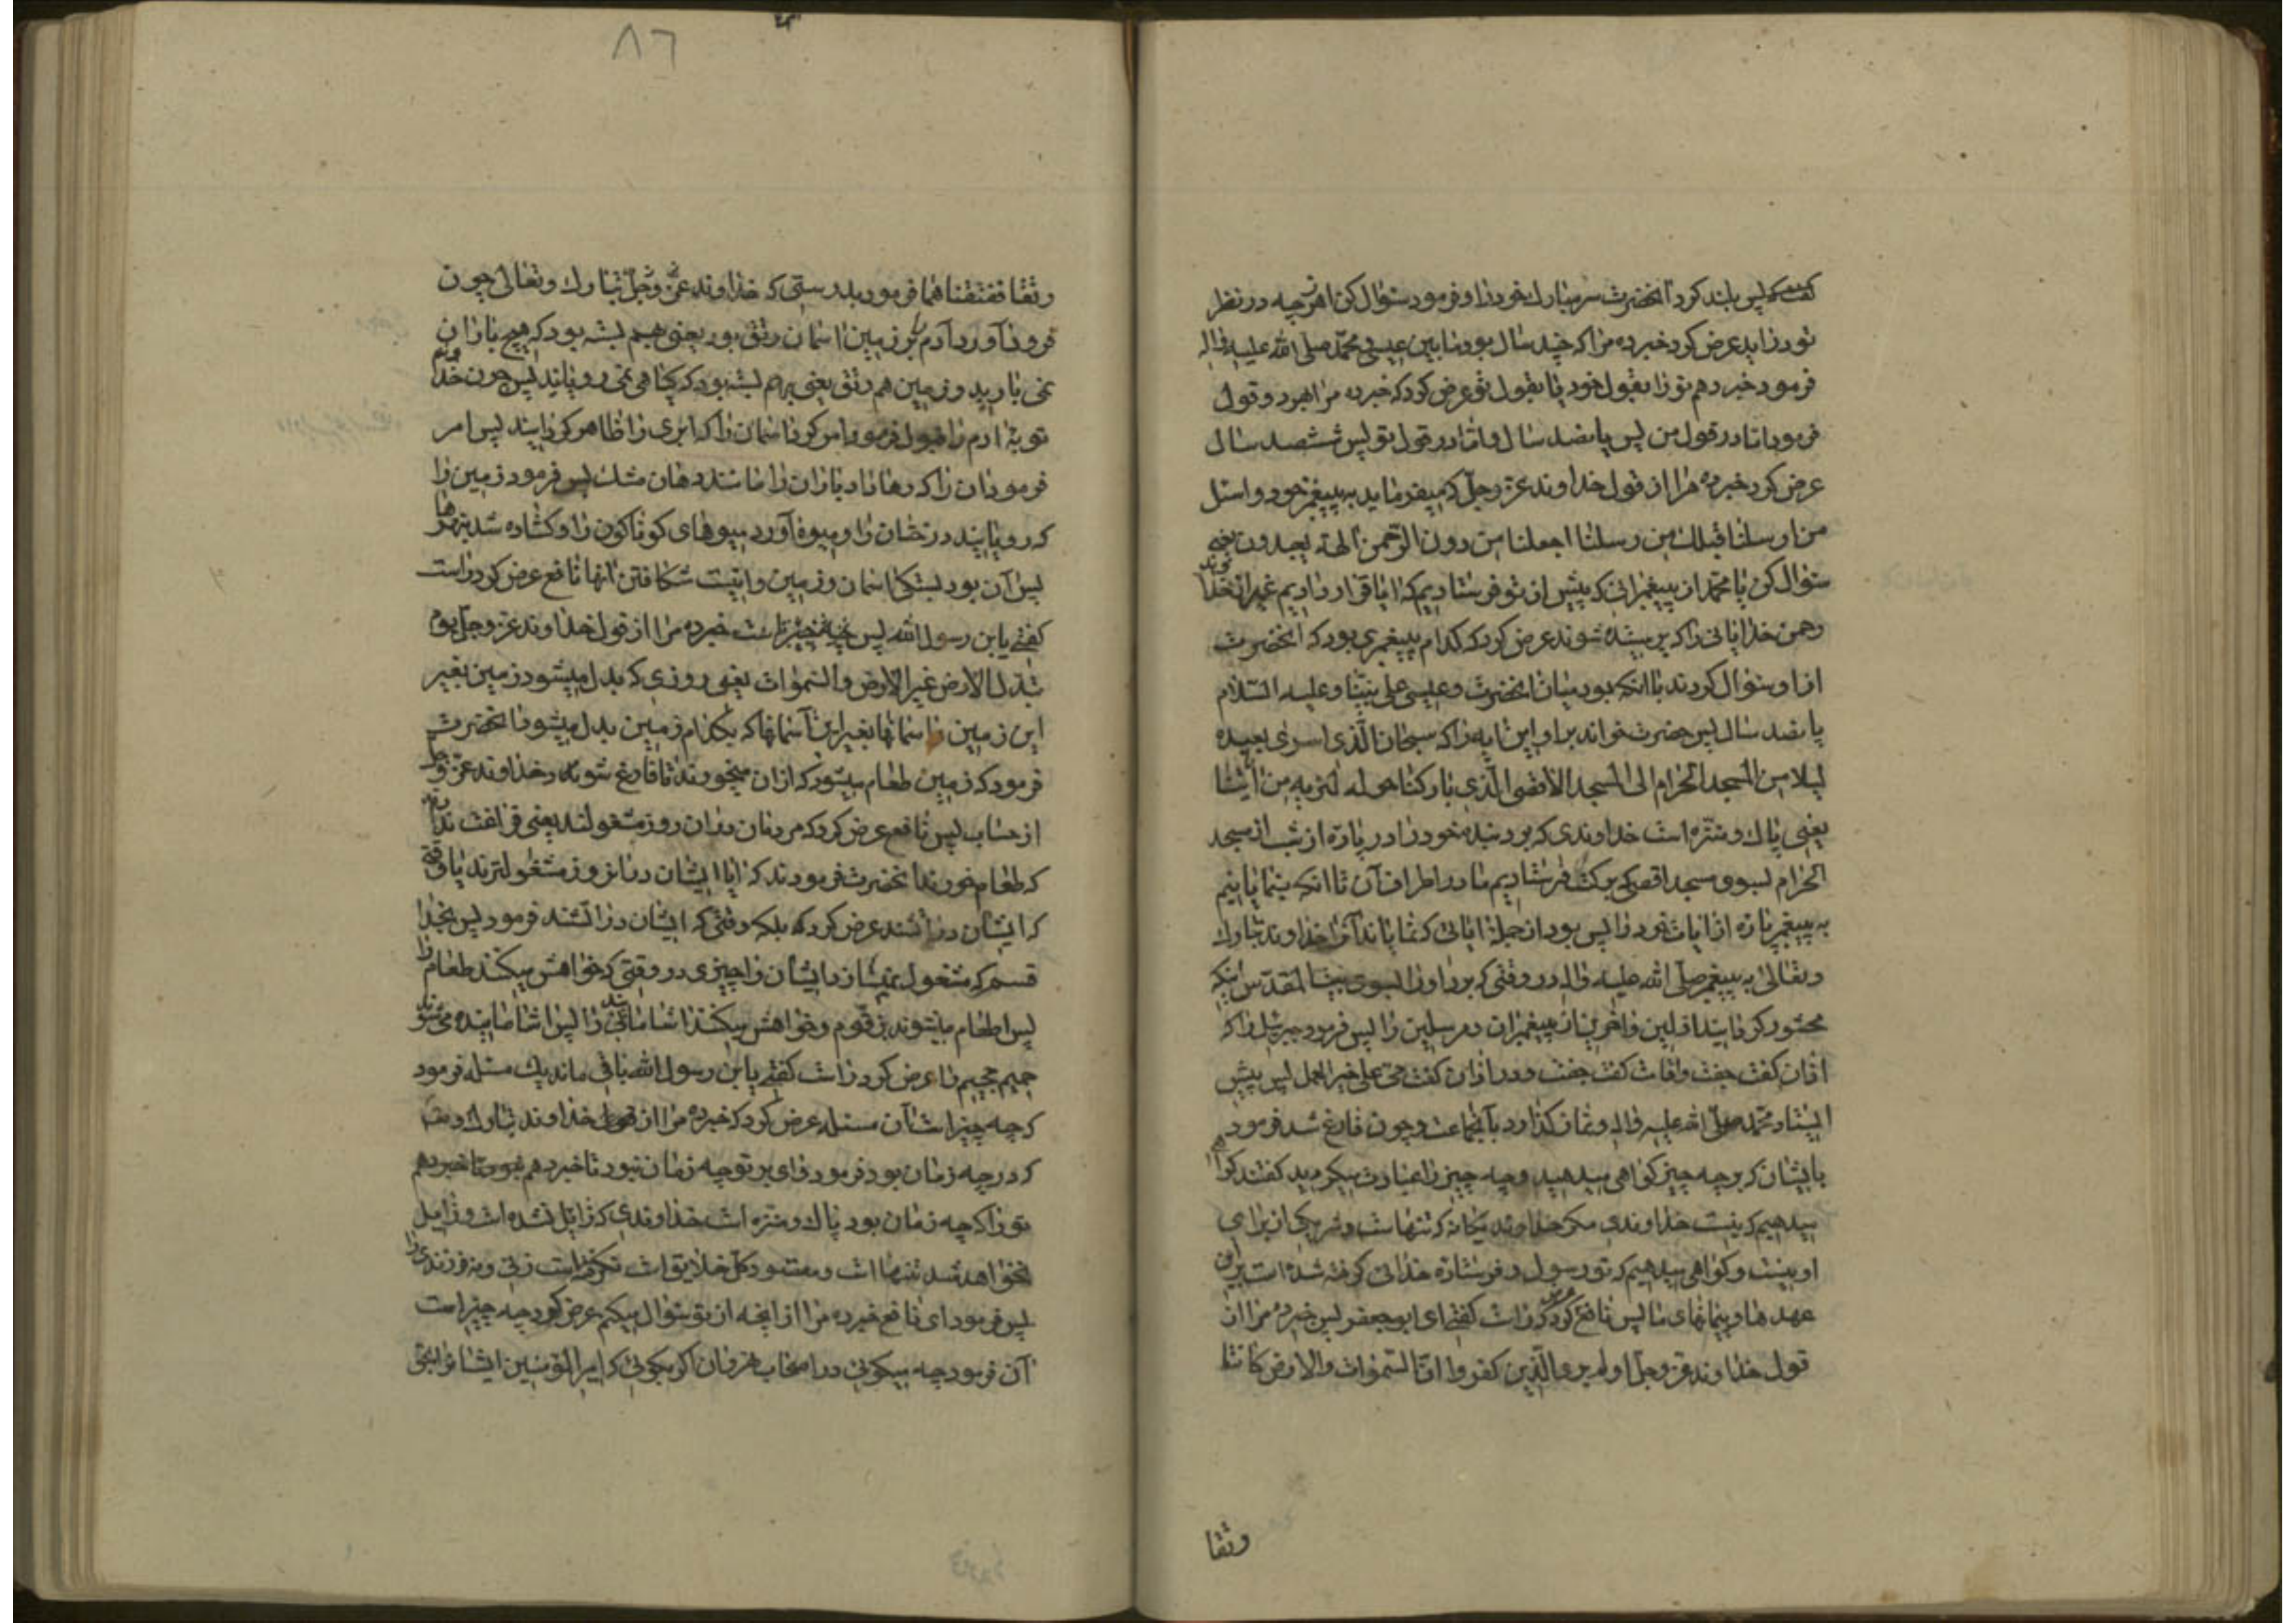 پس بلند کرد آنحضرت سر مبارک خود را و فرمود سئوال کن از هر چه در نظر
تو در آید عرض کرد خبر ده مرا که چند سال بود مابین عیسی و محمد صلی الله علیه و اله
فرمود خبر دهم تو را بقول خود یا بقول تو عرض کرد که خبر ده مرا بهر دو قول
فرمود اما در قول من پس پانصد سال و اما در قول تو پس ششصد سال
عرض کرد خبر ده مرا از قول خداوند عز و جل که میفرماید به پیغمبر خود و اسئل
من ارسلنا قبلک من رسلنا اجعلنا من دون الرحمن الهة یعبدون یعنی
سئوال کن یا محمد از پیغمبرانی که پیش از تو فرستادیم که ایا قرار دادیم غیر از خداوند
رحمن خدایانی را که پرستیده شوند عرض کرد که کدام پیغمبری بود که آنحضرت
از او سئوال کردند با آنکه بود میان آنحضرت و عیسی علی نبینا و علیه السلام
پانصد سال پس حضرت خواند بر او این ایه را که سبحان الذی اسری بعبده
لیلا من المسجد الحرام الی المسجد الاقصی الذی بارکنا حوله لنریه من آیاتنا
یعنی پاک و منزه است خداوندی که برد بنده خود را در پاره از شب از مسجد
الحرام بسوی مسجد اقصی که برکت فرستادیم ما در اطراف آن تا انکه بنمایانیم
به پیغمبر پاره از ایات خود را پس بود از جمله ایاتی که نمایاند آنرا خداوند تبارک
و تعالی به پیغمبر صلی الله علیه و اله در وقتی که برد او را بسوی بیت المقدس اینکه
محشور گردانید اولین و آخرین از پیغمبران و مرسلین را پس فرمود جبرئیل را که
اذان گفت جفت و اقامت گفت جفت و در اذان گفت حی علی خیر العمل پس پیش
ایستاد محمد صلی الله علیه و اله و نماز گذارد بآنجماعت و چون فارغ شد فرمود
بایشان که بر چه چیز گواهی میدهید و چه چیز را عبادت میکردید گفتند گواهی
میدهیم که نیست خداوندی مگر خداوند یگانه که تنهاست و شریکی از برای
او نیست و گواهی میدهیم که تو رسول و فرستاده خدائی گرفته شده است بر این
عهدها و پیمانهای ما پس نافع عرض کرد که راست گفتی ای ابو جعفر پس خبر ده مرا از
قول خداوند عز و جل اولم یر الذین کفروا ان السموات و الارض کانتا
رتقا
۸٦
رتقا ففتقناهما فرمود بدرستی که خداوند عز و جل تبارک و تعالی چون
فرود آورد آدم را بزمین اسمان رتق بود یعنی بهم بسته بود که هیچ باران
نمی بارید و زمین هم رتق یعنی بهم بسته بود که گیاهی نمی رویانید پس چون خداوند
توبه ادم را قبول فرمود امر کرد اسمان را که ابری را ظاهر گردانید پس امر
فرمود ان را که رها داد باران را مانند دهان مشک پس فرمود زمین را
که رویانید درختان را و میوه آورد میوهای گوناگون را و گشاده شد نهرها
پس آن بود بستگی اسمان و زمین و اینست شکافتن انها نافع عرض کرد راست
گفتی یابن رسول الله پس خبر ده مرا از قول خداوند عز و جل یوم
تبدل الارض غیر الارض و السموات یعنی روزی که بدل میشود زمین بغیر
این زمین و اسمانها بغیر این آسمانها که بکدام زمین بدل میشود آنحضرت
فرمود که زمین طعام میشود که از ان میخورند تا فارغ شود خداوند عز و جل
از حساب پس نافع عرض کرد که مردمان در ان روز مشغولند یعنی فراغت ندارند
که طعام خورند آنحضرت فرمودند که ایا ایشان در انروز مشغولترند یا وقتی
که ایشان در آتشند عرض کرد که بلکه وقتی که ایشان در اتشند فرمود پس بخدا
قسم که مشغول نمیسازد ایشان را چیزی در وقتی که خواهش میکنند طعام را
پس اطعام میشوند زقوم و خواهش میکنند اشامیدنی را پس اشامانیده می شوند
حمیم جحیم را عرض کرد راست گفتی یابن رسول الله باقی ماند یک مسئله فرمود
که چه چیز است آن مسئله عرض کرد که خبر ده مرا از خداوند تبارک و تعالی
که در چه زمان بود فرمود وای بر تو چه زمان نبود تا خبر دهم
تو را که چه زمان بود پاک و منزه است خداوندی که زایل نشده است و زایل
نخواهد شد تنها است و مقصود کل خلایق است نگرفته است زنی و نه فرزندی را
پس فرمود ای نافع خبر ده مرا از آنچه از تو سئوال میکنم عرض کرد چه چیز است
آن فرمود چه میگوئی در اصحاب نهروان اگر بگوئی که امیر المؤمنین ایشان را بحق